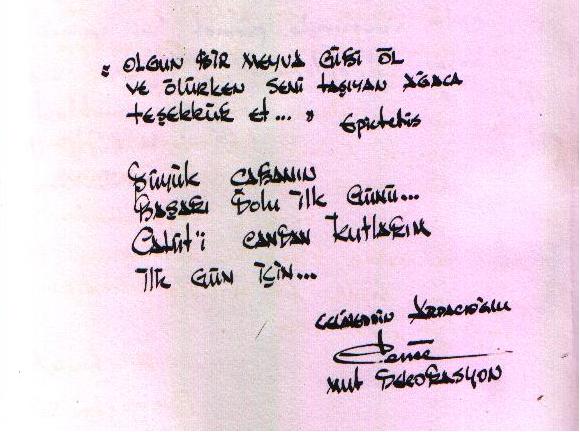 " OLGUN BİR MEYVA GİBİ ÖL
VE ÖLÜRKEN SENİ TAŞIYAN AĞACA
TEŞEKKÜR ET... "
Epiktetis
BÜYÜK ÇABANIN
BAŞARI DOLU İLK GÜNÜ...
CAHİT'İ CANDAN KUTLARIM
İLK GÜN İÇİN...
MUT DEKORASYON